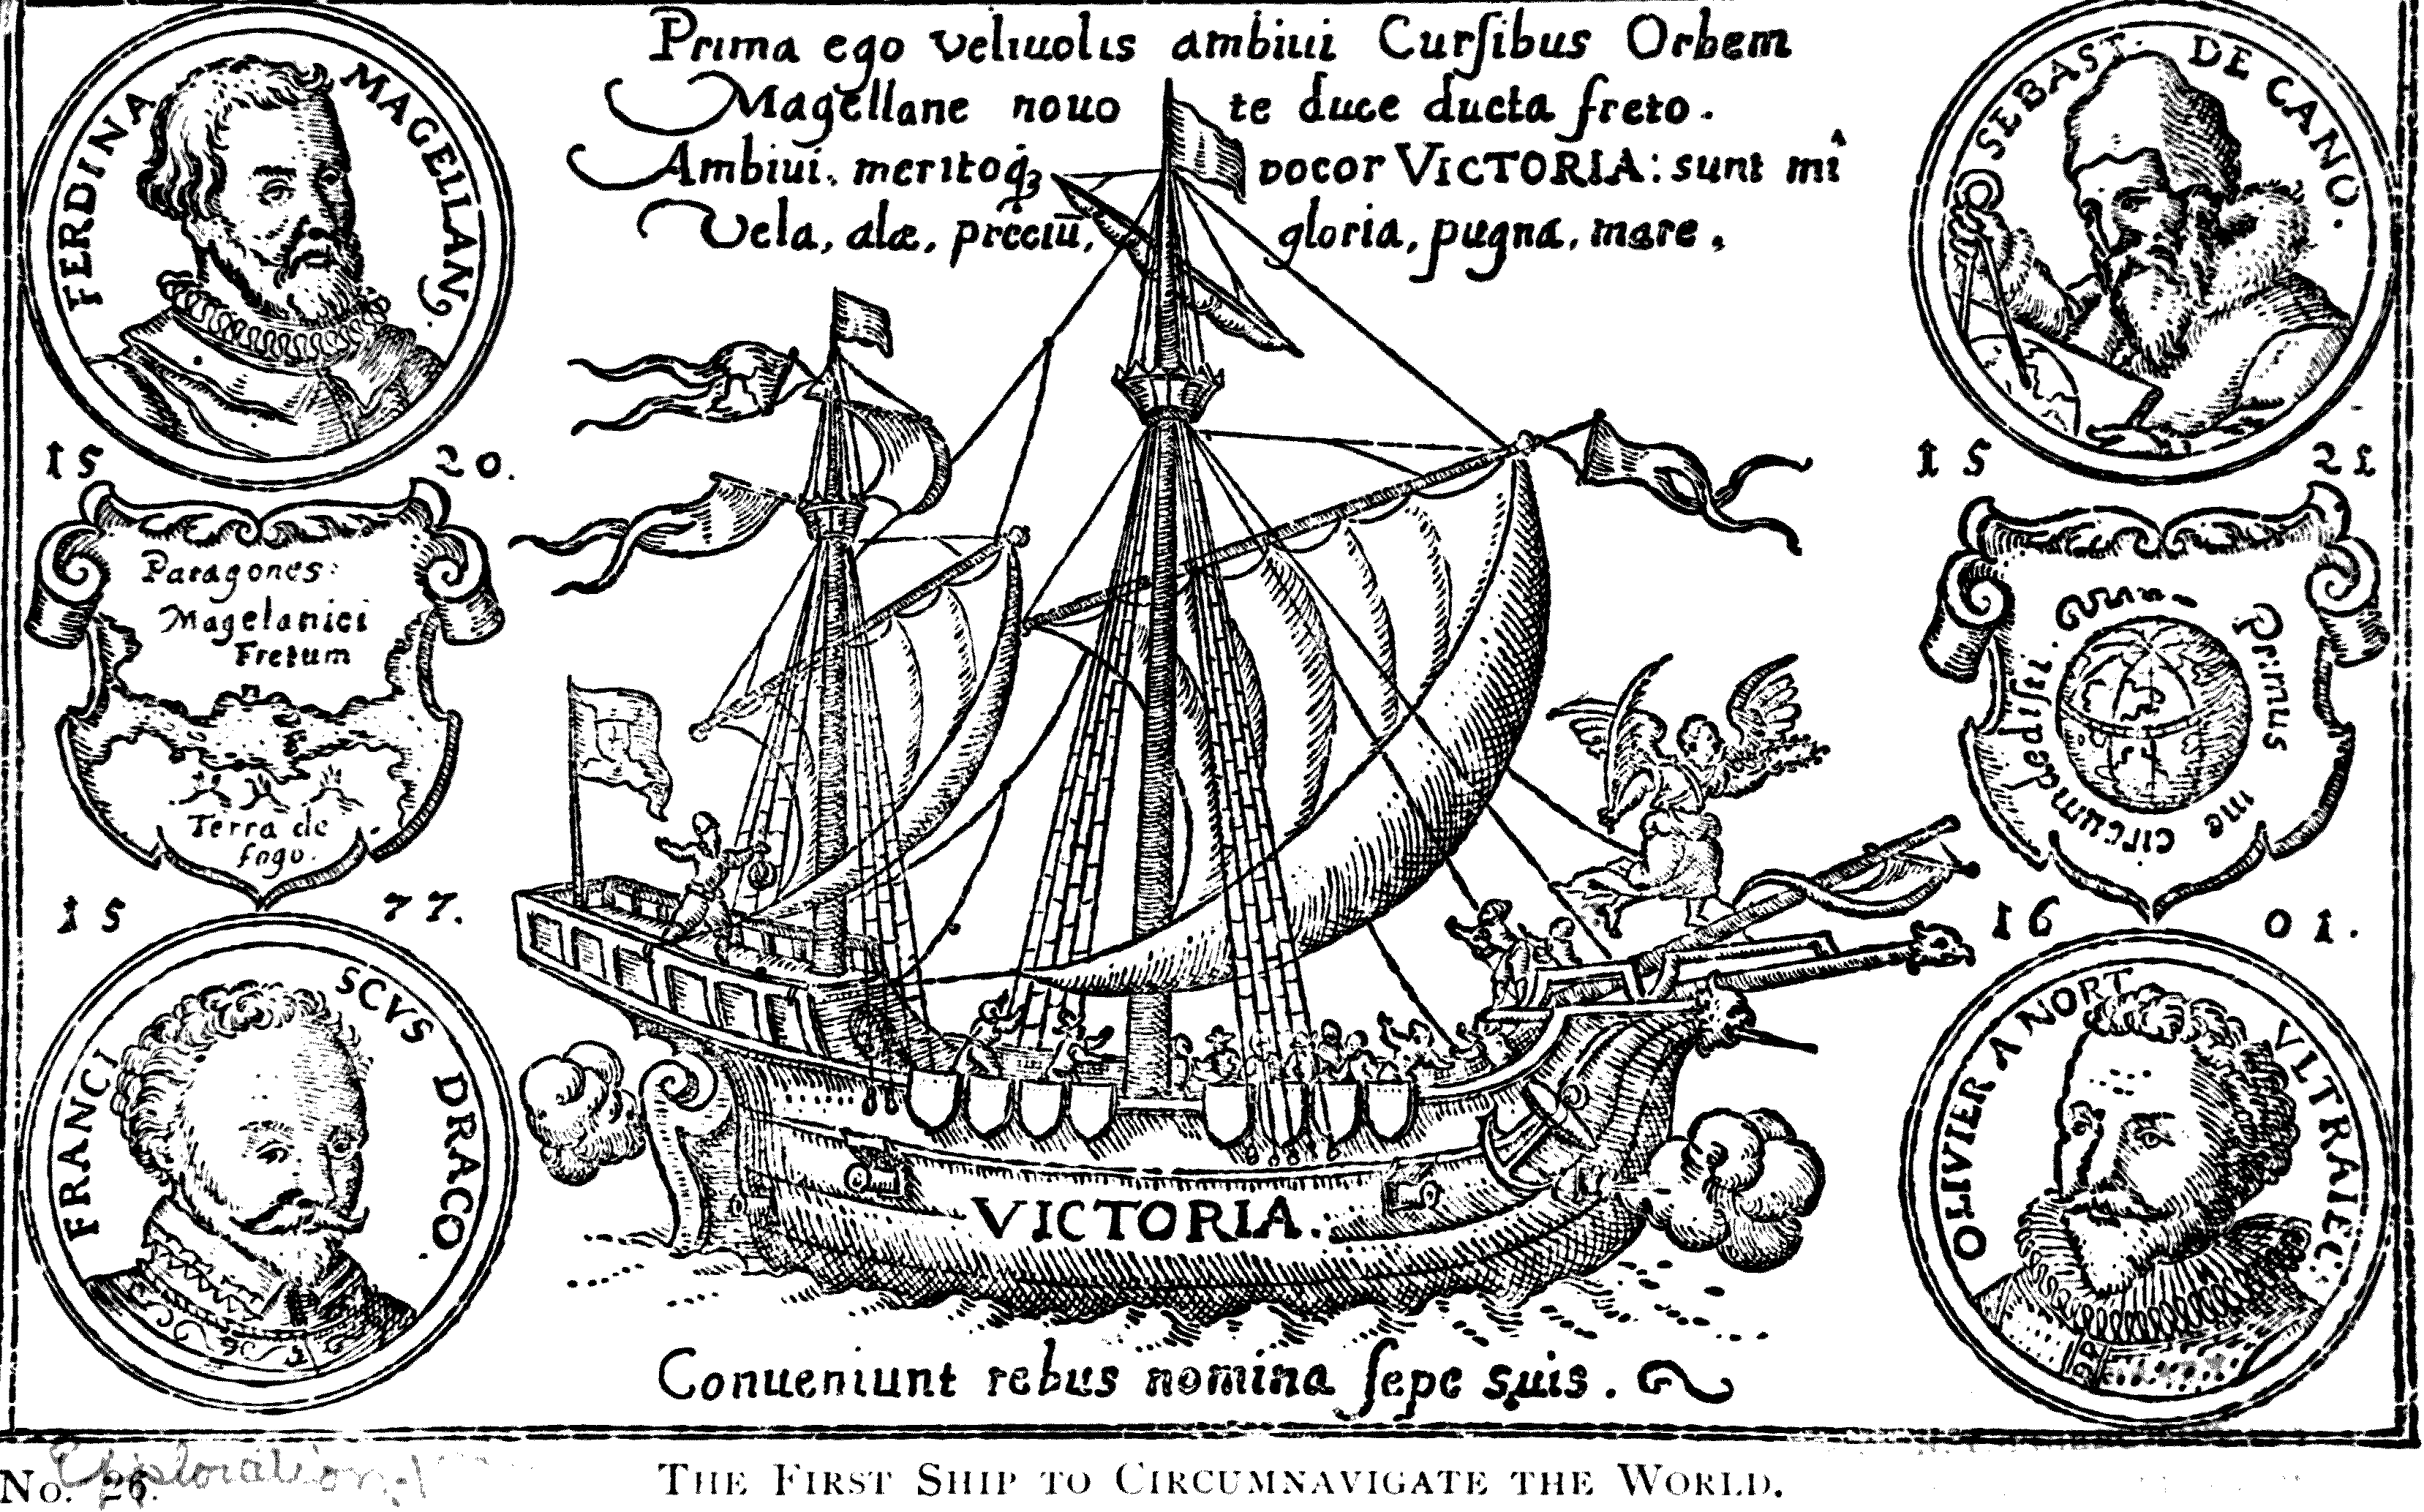 Prima ego veliuolis ambiui Curſibus Orbem
Magellane nouo te duce ducta freto.
Ambiui. meritoq́ꝫ vocor VICTORIA: sunt mî
Vela, alæ, preciū, gloria, pugna, mare.
FERDINA MAGELLANꝰ.
15 20.
SEBAST. DE CANO.
15 21
Patagones:
Magelanici
Fretum
Terra de
fogo.
Primus me circumdediſti.
15 77.
FRANCISCVS DRACO
16 01.
OLIVIER A NORT VLTRAIEC:
VICTORIA.
Conueniunt rebus nomina ſepe suis.
No. 26.
Exploration
THE FIRST SHIP TO CIRCUMNAVIGATE THE WORLD.